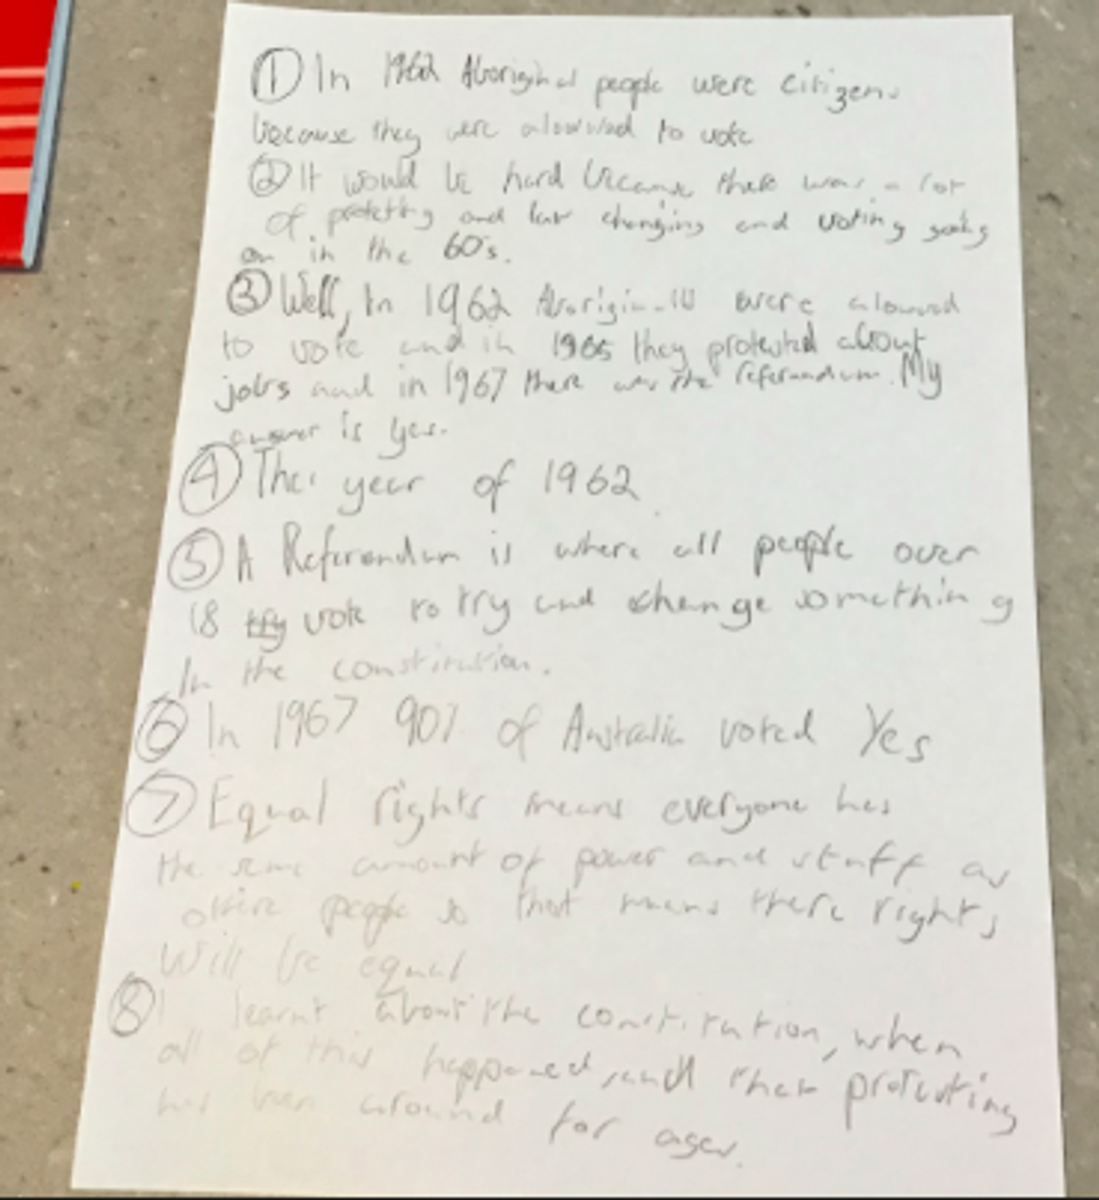 ① In 1962 Aboriginal people were citizens
because they were alowwed to vote
② It would be hard because there was a lot
of protesting and law changing and voting going
on in the 60's.
③ Well, In 1962 were alowed
to vote and in 1965 they protested about
jobs and in 1967 there was the referendum. My
answer is yes.
④ The year of 1962
⑤ A Referendum is where all people over
18 vote to try and change something
In the constitution.
⑥ In 1967 90% of Australia voted Yes
⑦ Equal rights means everyone has
the same amount of power and stuff as
people so that means there rights
will be equal
⑧ I learnt about the constitution, when
all of this happened, and that protesting
has been around for ages.